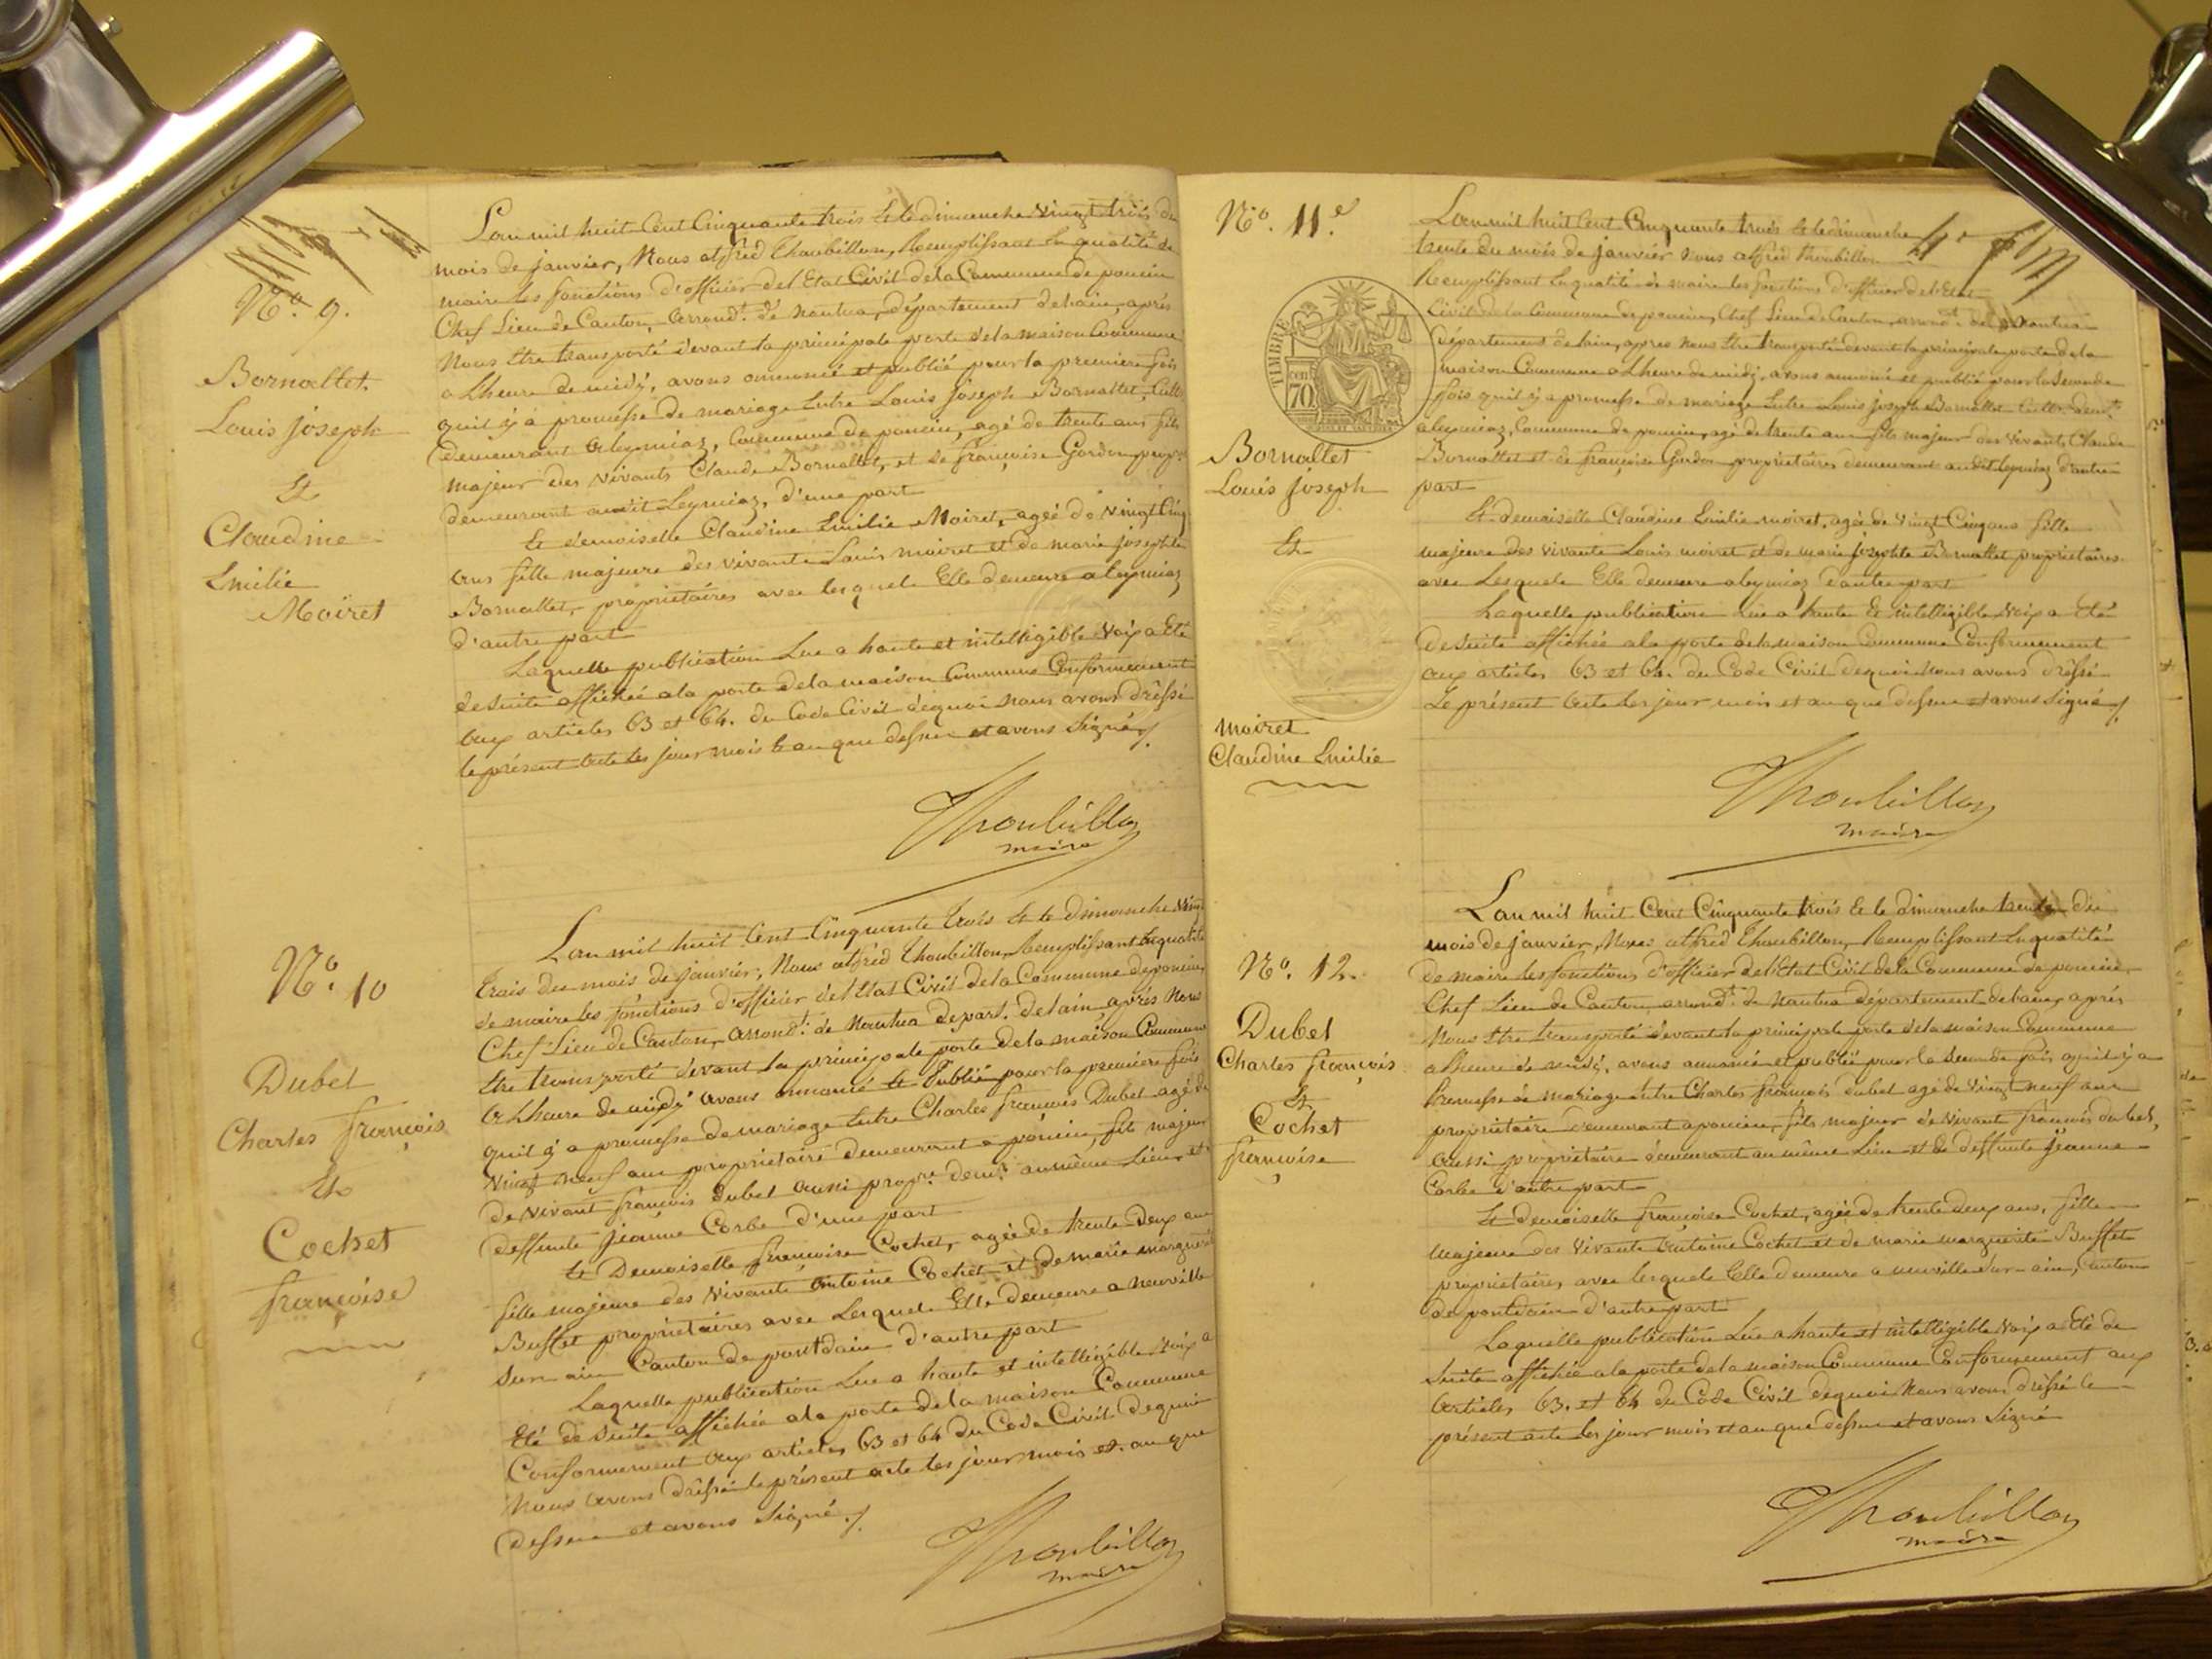 N.o 9.
Bornallet
Louis joseph
Et
Claudine
Emilie
Moiret
L'an mil huit Cent Cinquante trois Et le dimanche vingt trois du
mois de janvier, Nous alfred Thoubillon, Remplissant la qualité de
maire les fonctions d'officier del'Etat Civil dela Commune de poncin
Chef Lieu de Canton, arrond.t de nantua, département delain, après
Nous Etre transporté devant la principale porte dela maison Commune
a Lheure de midi, avons annoncé et publié pour la premiere fois
quil y à promesse de mariage Entre Louis joseph Bornallet, Cult.
demeurant a leymiaz, Commune de poncin, agé de trente ans fils
majeur des vivants Claude Bornallet, et de françoise Gordon prop.
demeurant audit Leymiaz, d'une part
Et demoiselle Claudine Emilie Moiret, agéé de vingt Cinq
ans fille majeure des vivants Louis moiret et de marie josephte
Bornallet, propriétaires avec lesquels Elle demeure a leymiaz
d'autre part
Laquelle publication Lue a haute et intelligible voix a Eté
de suite affichée ala porte dela maison Commune Conformement
aux articles 63 et 64. du Code Civil déquoi nous avons dréssé
le présent acte les jour mois et an que dessus et avons signé
Thoubillon
maire
N.o 10
Dubet
Charles françois
Et
Cochet
françoise
L'an mil huit Cent Cinquante trois Et le dimanche vingt
trois du mois de janvier, Nous alfred Thoubillon, Remplissant la qualité
de maire les fonctions d'officier del'Etat Civil dela Commune de poncin,
Chef Lieu de Canton, arrond.t de Nantua départ. delain, après Nous
Etre transporté devant la principale porte dela maison Commune
a Lheure de midi avons annoncé Et Publié pour la première fois
quil y a promesse de mariage Entre Charles françois Dubet agé de
vingt neuf ans propriétaire demeurant a poncin, fils majeur
de vivant françois dubet aussi prop.re dem.t aumême Lieu, et
deffunte jeanne Corbe d'une part
Et Demoiselle françoise Cochet, agée de trente deux ans
fille majeure des vivants antoine Cochet et de marie marguerite
Buffet propriétaires avec Lesquels Elle demeure a neuville
sur ain Canton de pontdain d'autre part
Laquelle publication Lue a haute et intelligible voix a
Eté de suite affichée ala porte dela maison Commune
Conformement aux articles 63 et 64 du Code Civil dequoi
Nous avons dréssé le présent acte les jour mois et an que
dessus et avons signé
Thoubillon
maire
N.o 11.e
TIMBRE
cen
70
Bornallet
Louis joseph
Et
moiret
Claudine Emilie
Lan mil huit Cent Cinquante trois Et le dimanche
trente du mois de janvier nous alfred thoubillon
Remplissant la qualité de maire les fonctions d'officier del'Etat
Civil dela Commune de poncin, Chef Lieu de Canton, arrond.t de nantua
département delain, apres nous Etre transporté devant la principale porte dela
maison Commune a Lheure de midi, avons annoncé et publié pour la seconde
fois quil y a promesse de mariage Entre Louis joseph Bornallet Cult. dem.t
aleymiaz, Commune de poncin, agé de trente ans fils majeur des vivants Claude
Bornallet et de françoise Gordon propriétaires demeurant audit leymiaz d'autre
part
Et demoiselle Claudine Emilie moiret, agée de vingt Cinq ans fille
majeure des vivants Louis moiret et de marie josephte Bornallet propriétaires
avec Lesquels Elle demeure aleymiaz d'autre part
Laquelle publication Lue a haute Et intelligible voix a Eté
de suite affichée ala porte dela maison Commune Conformement
aux articles 63 et 64. du Code Civil dequoi nous avons dréssé
Le présent acte les jour mois et an que dessus et avons signé
Thoubillon
maire
N.o 12.
Dubet
Charles françois
Et
Cochet
françoise
L'an mil huit Cent Cinquante trois Et le dimanche trente du
mois de janvier, Nous alfred Thoubillon, Remplissant la qualité
de maire les fonctions d'officier del'Etat Civil dela Commune de poncin,
Chef Lieu de Canton arrond.t de Nantua département delain, après
Nous Etre transporté devant la principale porte dela maison Commune
alheure de midi, avons annoncé et publié pour la seconde fois quil y a
Promesse de mariage Entre Charles françois dubet agé de vingt neuf ans
propriétaire demeurant a poncin, fils majeur de vivant françois dubet,
aussi propriétaire demeurant au même Lieu et de deffunte jeanne
Corbe d'autre part
Et demoiselle françoise Cochet, agée de trente deux ans, fille
majeure des vivants antoine Cochet et de marie marguerite Buffet
propriétaires, avec lesquels Elle demeure a neuville sur ain, Canton
de pontdain d'autre part
Laquelle publication Lue a haute et intelligible voix a Eté de
suite affichée ala porte dela maison Commune Conformement aux
articles 63. et 64 du Code Civil dequoi Nous avons dréssé le
présent acte les jour mois et an que dessus et avons signé
Thoubillon
maire